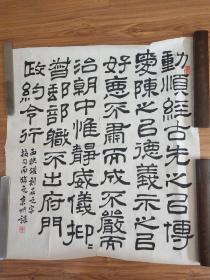 動順經古先之㠯博
愛陳之㠯德義示之㠯
好惡不肅而成不嚴而
治朝中惟靜威儀抑
督郵部職不出府門
政約令行
西狹頌刻石之字